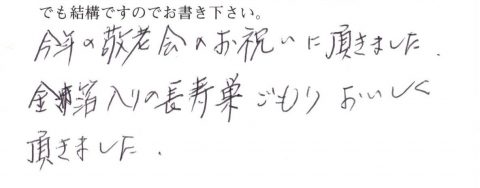 でも結構ですのでお書き下さい。
今年の敬老会のお祝いに頂きました.
金箔入りの長寿巣ごもり おいしく
頂きました.